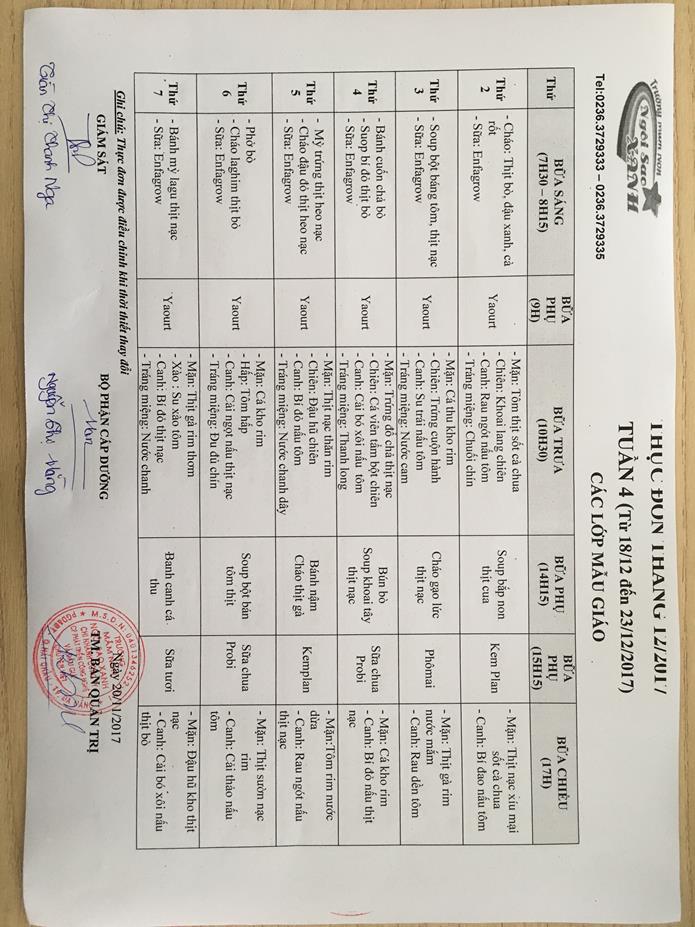 Trường mầm non
Ngôi Sao
XANH
Tel:0236.3729333 – 0236.3729335
THỰC ĐƠN THÁNG 12/2017
TUẦN 4 (Từ 18/12 đến 23/12/2017)
CÁC LỚP MẪU GIÁO
Thứ
BỮA SÁNG
(7H30 – 8H15)
BỮA
PHỤ
(9H)
BỮA TRƯA
(10H30)
BỮA PHỤ
(14H15)
BỮA
PHỤ
(15H15)
BỮA CHIỀU
(17H)
Thứ
2
- Cháo: Thịt bò, đậu xanh, cà
rốt
- Sữa: Enfagrow
Yaourt
- Mặn: Tôm thịt sốt cà chua
- Chiên: Khoai lang chiên
- Canh: Rau ngót nấu tôm
- Tráng miệng: Chuối chín
Soup bắp non
thịt cua
Kem Plan
- Mặn: Thịt nạc xíu mại
sốt cà chua
- Canh: Bí đao nấu tôm
Thứ
3
- Soup bột báng tôm, thịt nạc
- Sữa: Enfagrow
Yaourt
- Mặn: Cá thu kho rim
- Chiên: Trứng cuộn hành
- Canh: Su trái nấu tôm
- Tráng miệng: Nước cam
Cháo gạo lức
thịt nạc
Phômai
- Mặn: Thịt gà rim
nước mắm
- Canh: Rau dền tôm
Thứ
4
- Bánh cuốn chả bò
- Suop bí đỏ thịt bò
- Sữa: Enfagrow
Yaourt
- Mặn: Trứng đổ chả thịt nạc
- Chiên: Cá viên tẩm bột chiên
- Canh: Cải bó xôi nấu tôm
- Tráng miệng: Thanh long
Bún bò
Soup khoai tây
thịt nạc
Sữa chua
Probi
- Mặn: Cá kho rim
- Canh: Bí đỏ nấu thịt
nạc
Thứ
5
- Mỳ trứng thịt heo nạc
- Cháo đậu đỏ thịt heo nạc
- Sữa: Enfagrow
Yaourt
- Mặn: Thịt nạc thăn rim
- Chiên: Đậu hũ chiên
- Canh: Bí đỏ nấu tôm
- Tráng miệng: Nước chanh dây
Bánh nậm
Cháo thịt gà
Kemplan
- Mặn:Tôm rim nước
dừa
- Canh: Rau ngót nấu
thịt nạc
Thứ
6
- Phở bò
- Cháo laghim thịt bò
- Sữa: Enfagrow
Yaourt
- Mặn: Cá kho rim
- Hấp: Tôm hấp
- Canh: Cải ngọt nấu thịt nạc
- Tráng miệng: Đu đủ chín
Soup bột bán
tôm thịt
Sữa chua
Probi
- Mặn: Thịt sườn nạc
rim
- Canh: Cải thảo nấu
tôm
Thứ
7
- Bánh mỳ lagu thịt nạc
- Sữa: Enfagrow
Yaourt
- Mặn: Thịt gà rim thơm
- Xào : Su xào tôm
- Canh: Bí đỏ thịt nạc
- Tráng miệng: Nước chanh
Banh canh cá
thu
Sữa tươi
- Mặn: Đậu hũ kho thịt
nạc
- Canh: Cải bó xôi nấu
thịt bò
Ghi chú: Thực đơn được điều chỉnh khi thời thiết thay đổi
Ngày 20/11/2017
GIÁM SÁT
BỘ PHẬN CẤP DƯỠNG
TM. BAN QUẢN TRỊ
Trần Thị Thanh Nga
Nguyễn Thị